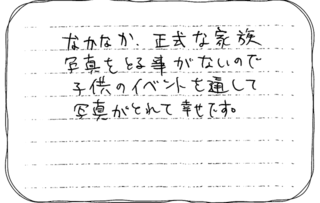 なかなか、正式な家族
写真をとる事がないので
子供のイベントを通して
写真がとれて幸せです。